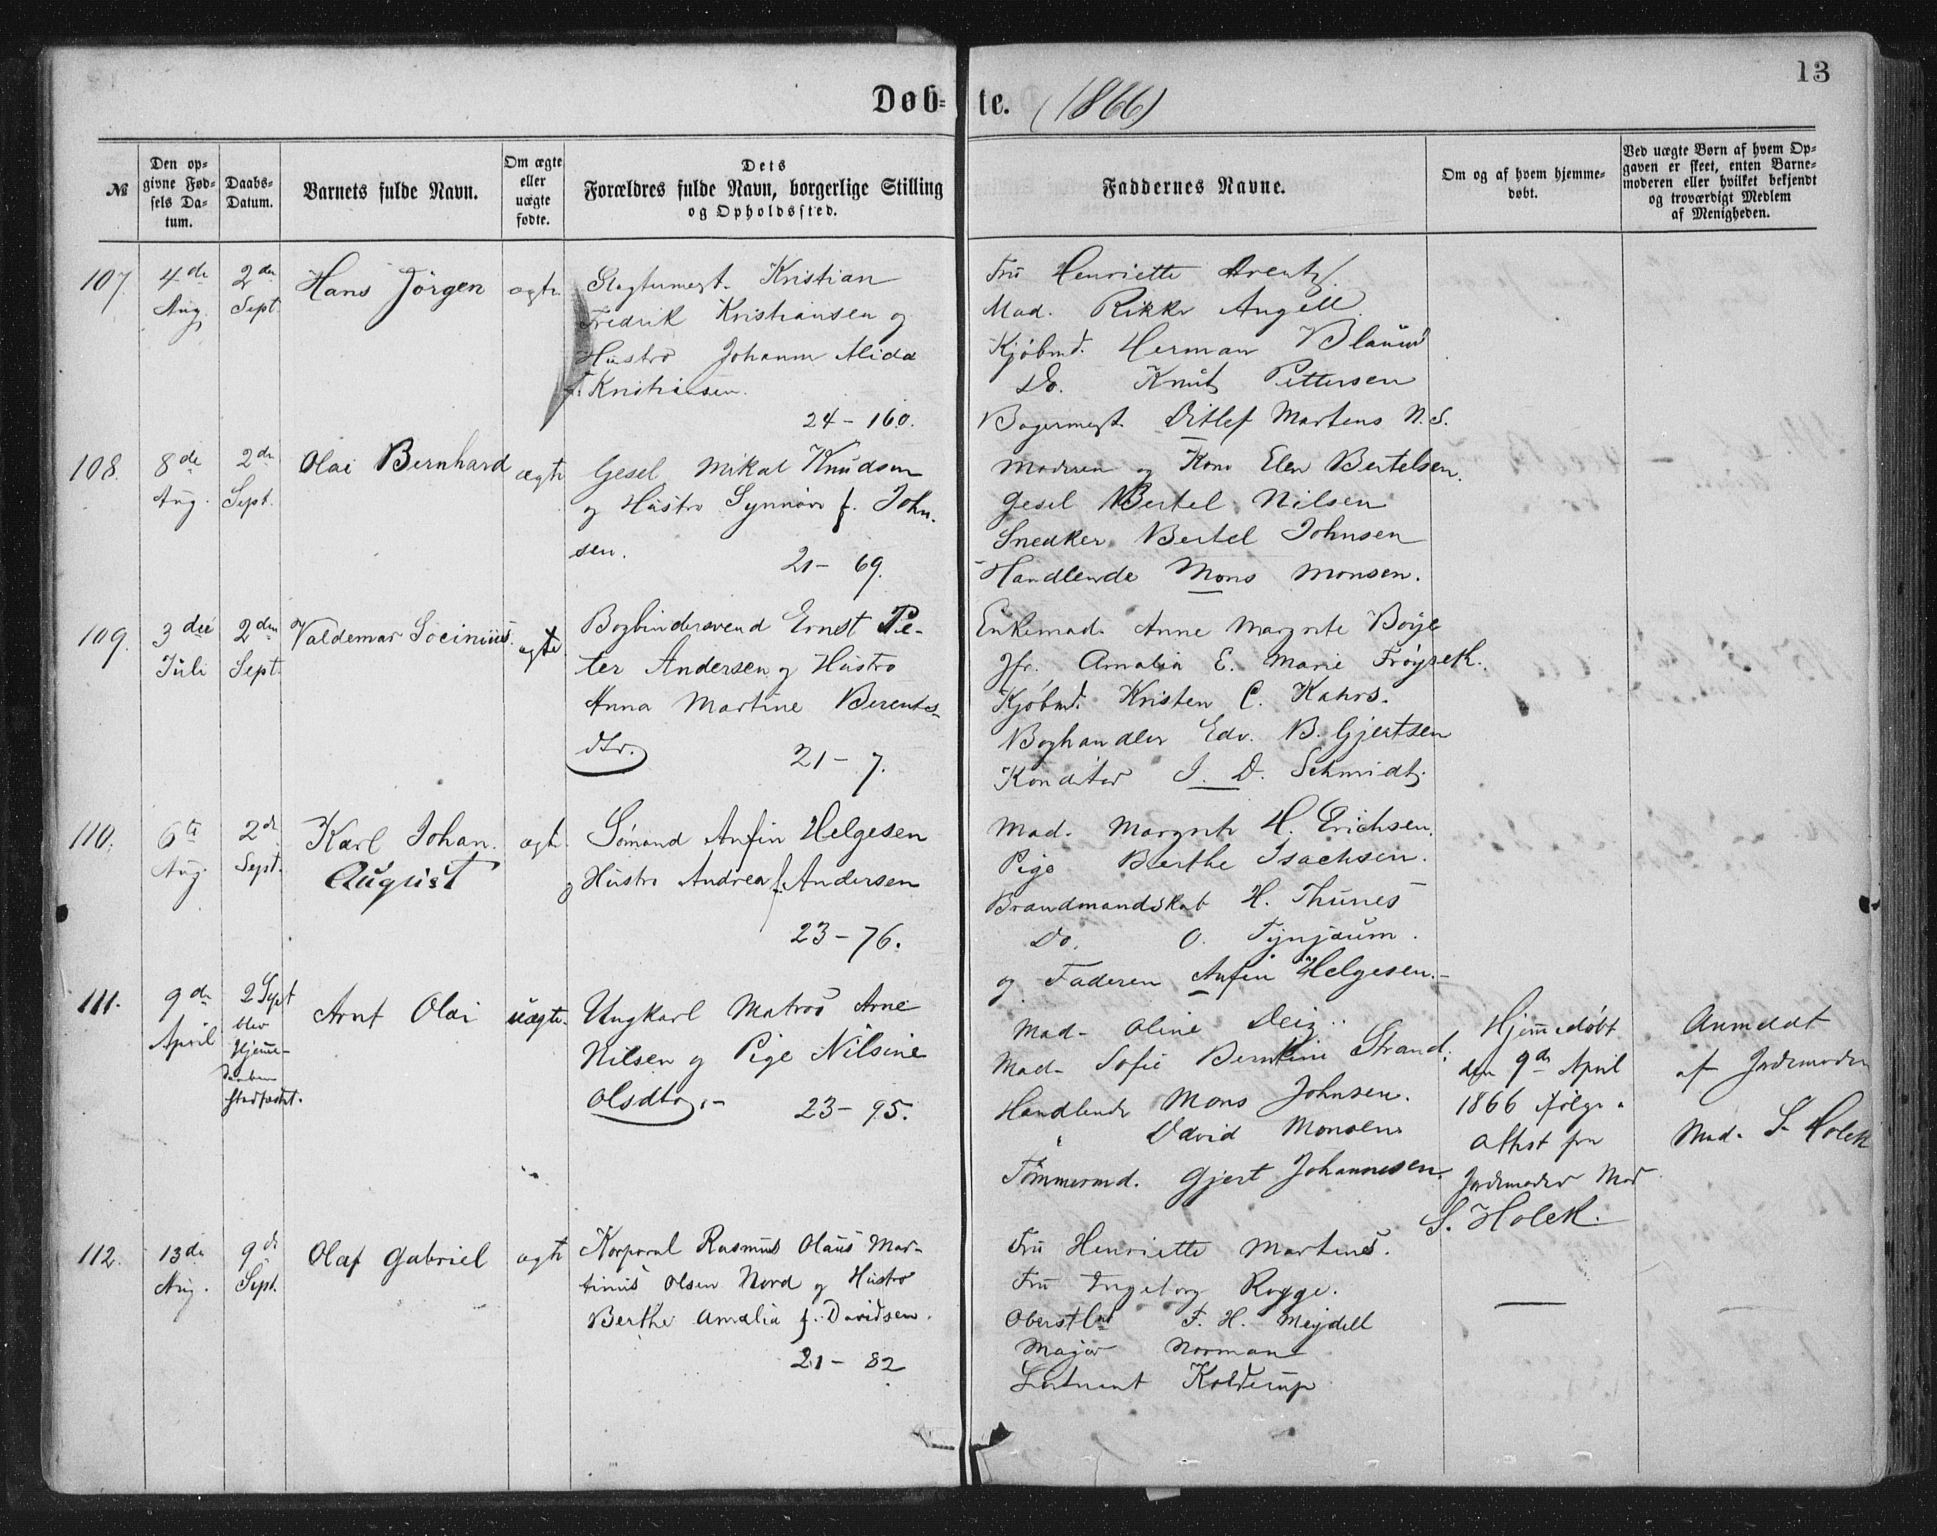 13
Døb- te. (1866)
№
Den opgivne Fødsels Datum.
Daabs-Datum.
Barnets fulde Navn.
Om ægte eller uægte fødte.
Dets Forældres fulde Navn, borgerlige Stilling og Opholdssted.
Faddernes Navne.
Om og af hvem hjemmedøbt.
Ved uægte Børn af hvem Opgaven er skeet, enten Barnemoderen eller hvilket bekjendt og troværdigt Medlem af Menigheden.
107.
4de
Aug.
2den
Sept.
Hans Jörgen
ægte
Slagtermest. Kristian
Fredrik Kristiansen og
Hustro Johanne Alida
f. Kristiansen.
24 - 160.
Fru Henriette Arentz.
Mad. Rikke Angell.
Kjøbmd. Herman
Do. Knut Pettersen
Bagermest. Ditlef Martens N. S.
108.
8de
Aug.
2den
Sept.
Olai Bernhard
ægte
Gesel Mikal Knudsen
og Hustro Synnöve f. John-
sen.
21 - 69.
Moderen og Kone Elen Bertelsen.
Gesel Bertel Nilsen
Snedker Bertel Johnsen
Handlende Mons Monsen.
109.
3die
Juli
2den
Sept.
Valdemar Socinius.
ægte
Bogbindersvend Ernst Pe-
ter Andersen og Hustro
Anna Martine Berents-
dtr.
21 - 7.
Enkemad. Anne Margrete Böye
Jfr. Amalia E. Marie
Kjøbmd. Kristen C. Kahrs.
Boghandler Edv. B. Gjertsen
Konditor J. D. Schmidt.
110.
6te
Aug.
2den
Sept.
Karl Johan
August
ægte
Sømand Anfin Helgesen
og Hustro Andrea f. Andersen
23 - 76.
Mad. Margrete H. Erichsen.
Pige Berthe Isachsen.
Brandmandskab H. Thunes
Do. O. Tynjaum.
og Faderen Anfin Helgesen.-
111.
9de
April
2 Sept
blev
Hjemme-
daaben
stadfæstet.
Arnt Olai
uægte.
Ungkarl Matros Arne
Nilsen og Pige Nilsine
Olsdtr.-
23 - 95.
Mad. Oline
Mad. Sofie Berntine Strand.
Handlende Mons Johnsen.
" David Monsen
Tømmermd. Gjert Johannesen.
Hjemmedøbt
den 9de April
1866 ifølge
Attest fra
Jordemoder Mad.
S. Holck.
Anmeldt
af Jordemoder
Mad. S. Holck
112.
13de
Aug.
9de
Sept.
Olaf Gabriel
ægte
Korporal Rasmus Olaus Mar-
tinus Olsen Nord og Hustro
Berthe Amalia f. Davidsen.
21 - 82
Fru Henriette Martens.
Fru Ingeborg Rogge.
Oberstlnt F. H. Meydell
Major Norman
Lieutnant Kolderup